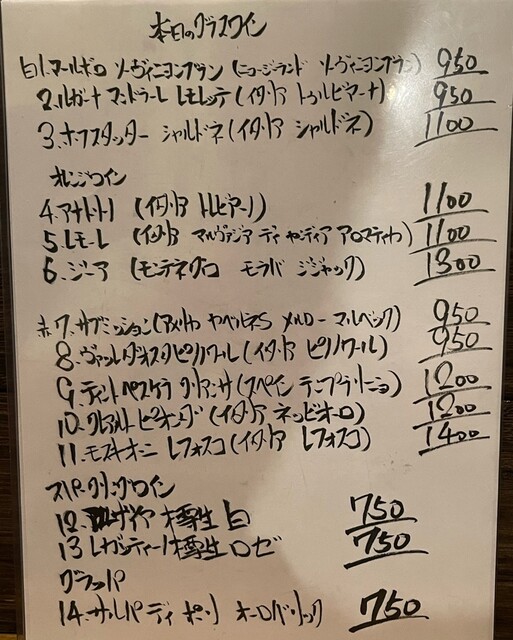 本日のグラスワイン
白1.マールボロ ソーヴィニヨンブラン(ニュージーランド ソーヴィニヨンブラン) 950
2.ルガーナ マンドラーレ レモレッテ(イタリア トゥルビアーナ) 950
3.ホフスタッター シャルドネ(イタリア シャルドネ) 1100
オレンジワイン
4.アナトリーノ (イタリア トレビアーノ) 1100
5.レモーレ (イタリア マルヴァジア ディ カンディア アロマティカ) 1100
6.ジーア (モンテネグロ モラバ ジジャック) 1300
赤7.サブミッション(アメリカ カベルネS メルロー マルベック) 950
8.ヴァッレダオスタピノノワール(イタリア ピノノワール) 950
9.ティントペスケラ クリアンサ(スペイン テンプラリーニョ) 1200
10.クレアルト ピオンダ(イタリア ネッビオーロ) 1200
11.モスキオーニ レフォスコ(イタリア レフォスコ) 1400
スパークリングワイン
12.ザイヤ 樽生 白 750
13 レガンティーノ 樽生 ロゼ 750
グラッパ
14.サルパ ディ ポリ オーロバリック 750